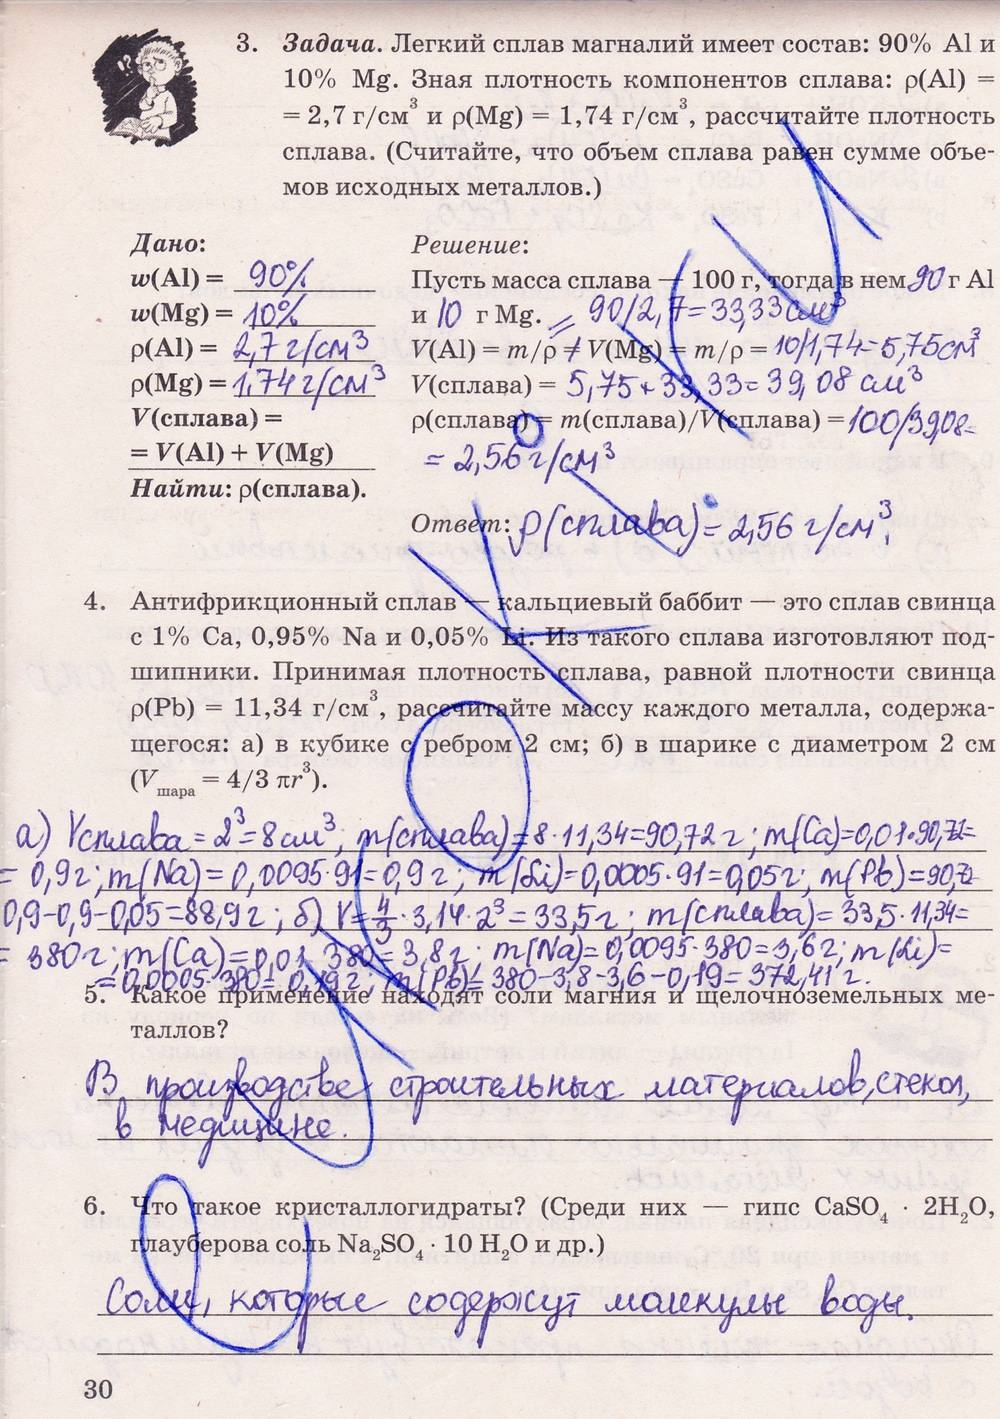 3. Задача. Легкий сплав магналий имеет состав: 90% Al и
10% Mg. Зная плотность компонентов сплава: ρ(Al) =
= 2,7 г/см³ и ρ(Mg) = 1,74 г/см³, рассчитайте плотность
сплава. (Считайте, что объем сплава равен сумме объе-
мов исходных металлов.)
Дано:
w(Al) = 90%
w(Mg) = 10%
ρ(Al) = 2,7 г/см³
ρ(Mg) = 1,74 г/см³
V(сплава) =
= V(Al) + V(Mg)
Найти: ρ(сплава).
Решение:
Пусть масса сплава — 100 г, тогда в нем 90 г Al
и 10 г Mg. = 90/2,7 = 33,33 см³
V(Al) = m/ρ ≠ V(Mg) = m/ρ = 10/1,74 = 5,75 см³
V(сплава) = 5,75 + 33,33 = 39,08 см³
ρ(сплава) = m(сплава)/V(сплава) = 100/39,08 =
= 2,56 г/см³
Ответ: ρ(сплава) = 2,56 г/см³.
4. Антифрикционный сплав — кальциевый баббит — это сплав свинца
с 1% Ca, 0,95% Na и 0,05% Li. Из такого сплава изготовляют под-
шипники. Принимая плотность сплава, равной плотности свинца
ρ(Pb) = 11,34 г/см³, рассчитайте массу каждого металла, содержа-
щегося: а) в кубике с ребром 2 см; б) в шарике с диаметром 2 см
(Vшара = 4/3 πr³).
а) Vсплава = 2³ = 8 см³; m(сплава) = 8 · 11,34 = 90,72 г; m(Ca) = 0,01 · 90,72 =
= 0,9 г; m(Na) = 0,0095 · 91 = 0,9 г; m(Li) = 0,0005 · 91 = 0,05 г; m(Pb) = 90,72
0,9 - 0,9 - 0,05 = 88,9 г; б) V = 4/3 · 3,14 · 2³ = 33,5 г; m(сплава) = 33,5 · 11,34 =
= 380 г; m(Ca) = 0,01 · 380 = 3,8 г; m(Na) = 0,0095 · 380 = 3,6 г; m(Li) =
= 0,0005 · 380 = 0,19 г; m(Pb) = 380 - 3,8 - 3,6 - 0,19 = 372,41 г.
5. Какое применение находят соли магния и щелочноземельных ме-
таллов?
В производстве строительных материалов, стекол,
в медицине.
6. Что такое кристаллогидраты? (Среди них — гипс CaSO₄ · 2H₂O,
глауберова соль Na₂SO₄ · 10 H₂O и др.)
Соли, которые содержут молекулы воды.
30